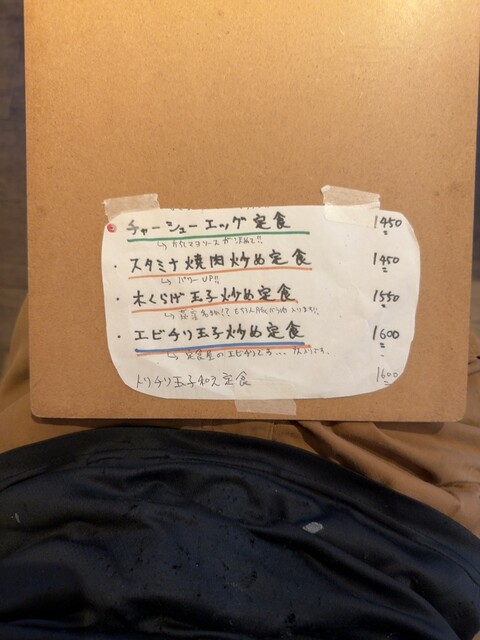 チャーシューエッグ定食 1450
スタミナ焼肉炒め定食 1450
↳ パワーUP!!
木くらげ玉子炒め定食 1550
エビチリ玉子炒め定食 1600
↳ 定食屋のエビチリとろ...
トリチリ玉子和え定食 1600